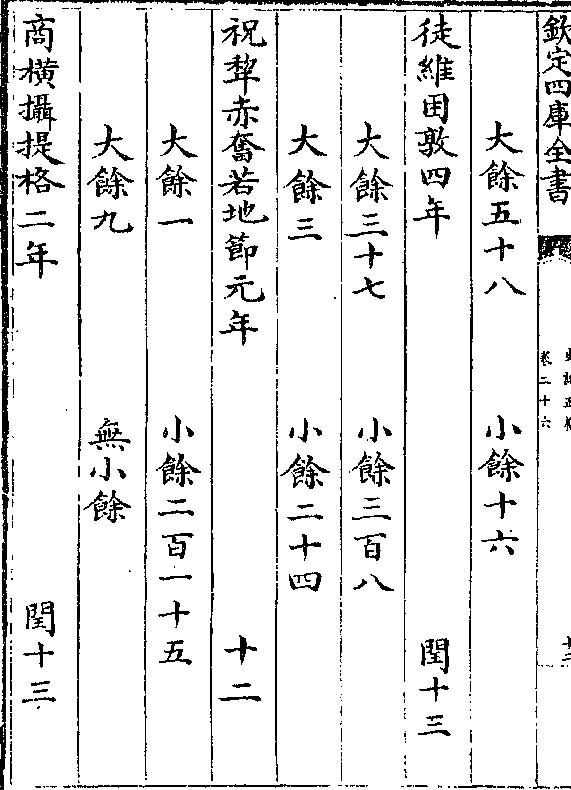 欽定四庫全書
卷二十六
大餘五十八 小餘十六
徒維困敦四年 閏十三
大餘三十七 小餘三百八
大餘三 小餘二十四
祝犂赤奮若地節元年 十二
大餘一 小餘二百一十五
大餘九 無小餘
商橫攝提格二年 閏十三